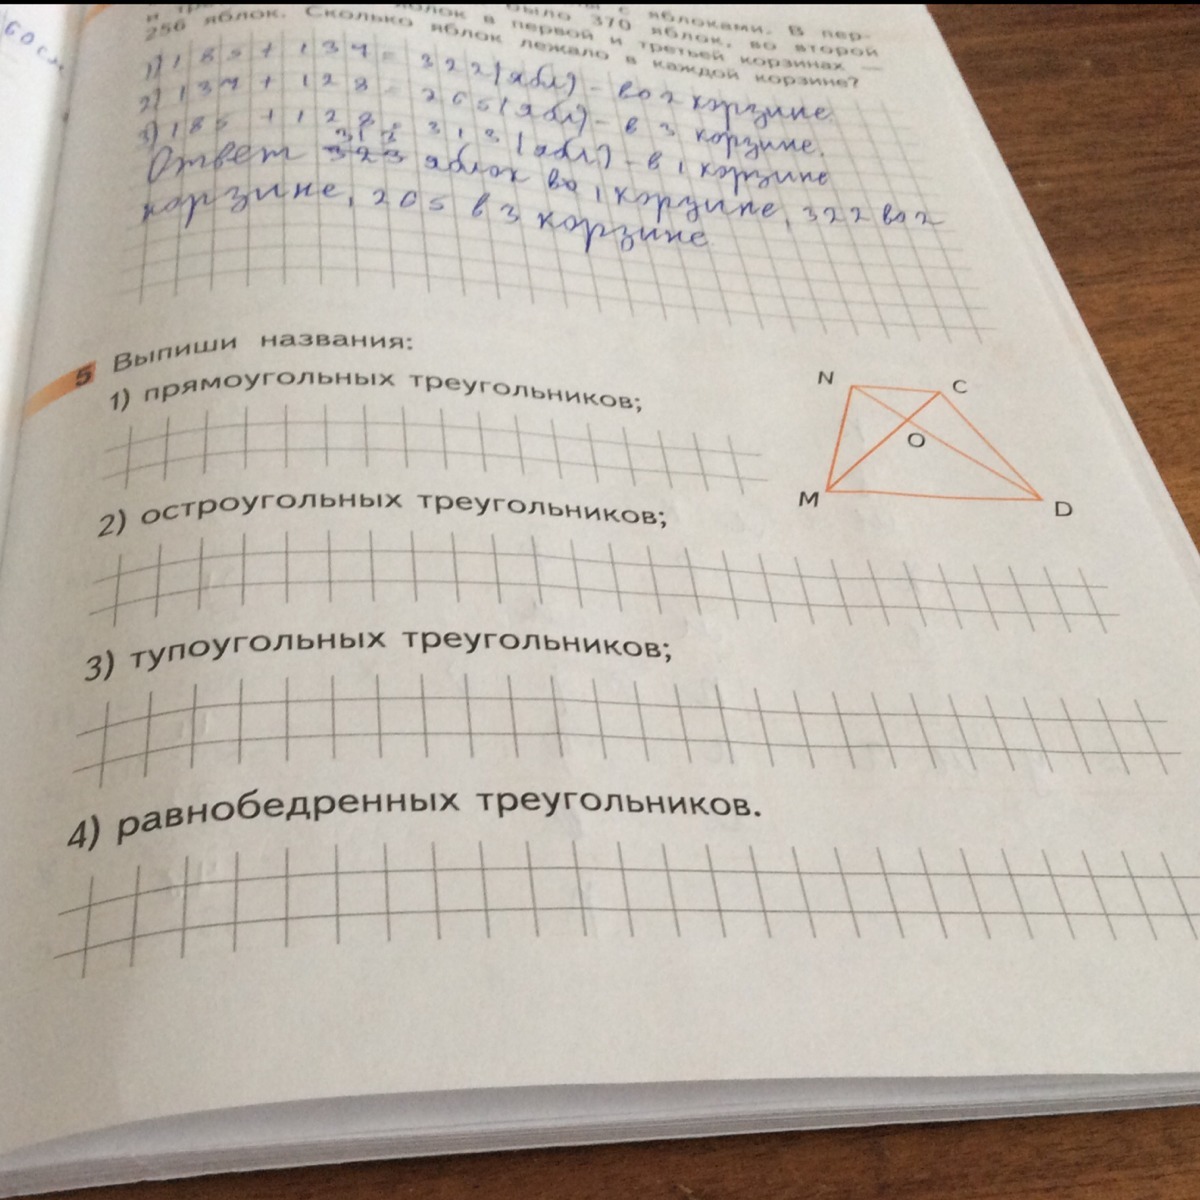 с яблоками. В пер-
было 370 яблок, во второй
в первой и третьей корзинах —
256 яблок. Сколько яблок лежало в каждой корзине?
1) 185 + 137 = 322 (ябл) – во 2 корзине
2) 137 + 128 = 265 (ябл) – в 3 корзине.
3) 185 + 128 = 313 (ябл) – в 1 корзине
Ответ яблок во 1 корзине, 322 во 2
корзине, 265 в 3 корзине
5 Выпиши названия:
1) прямоугольных треугольников;
N C
O
M D
2) остроугольных треугольников;
3) тупоугольных треугольников;
4) равнобедренных треугольников.